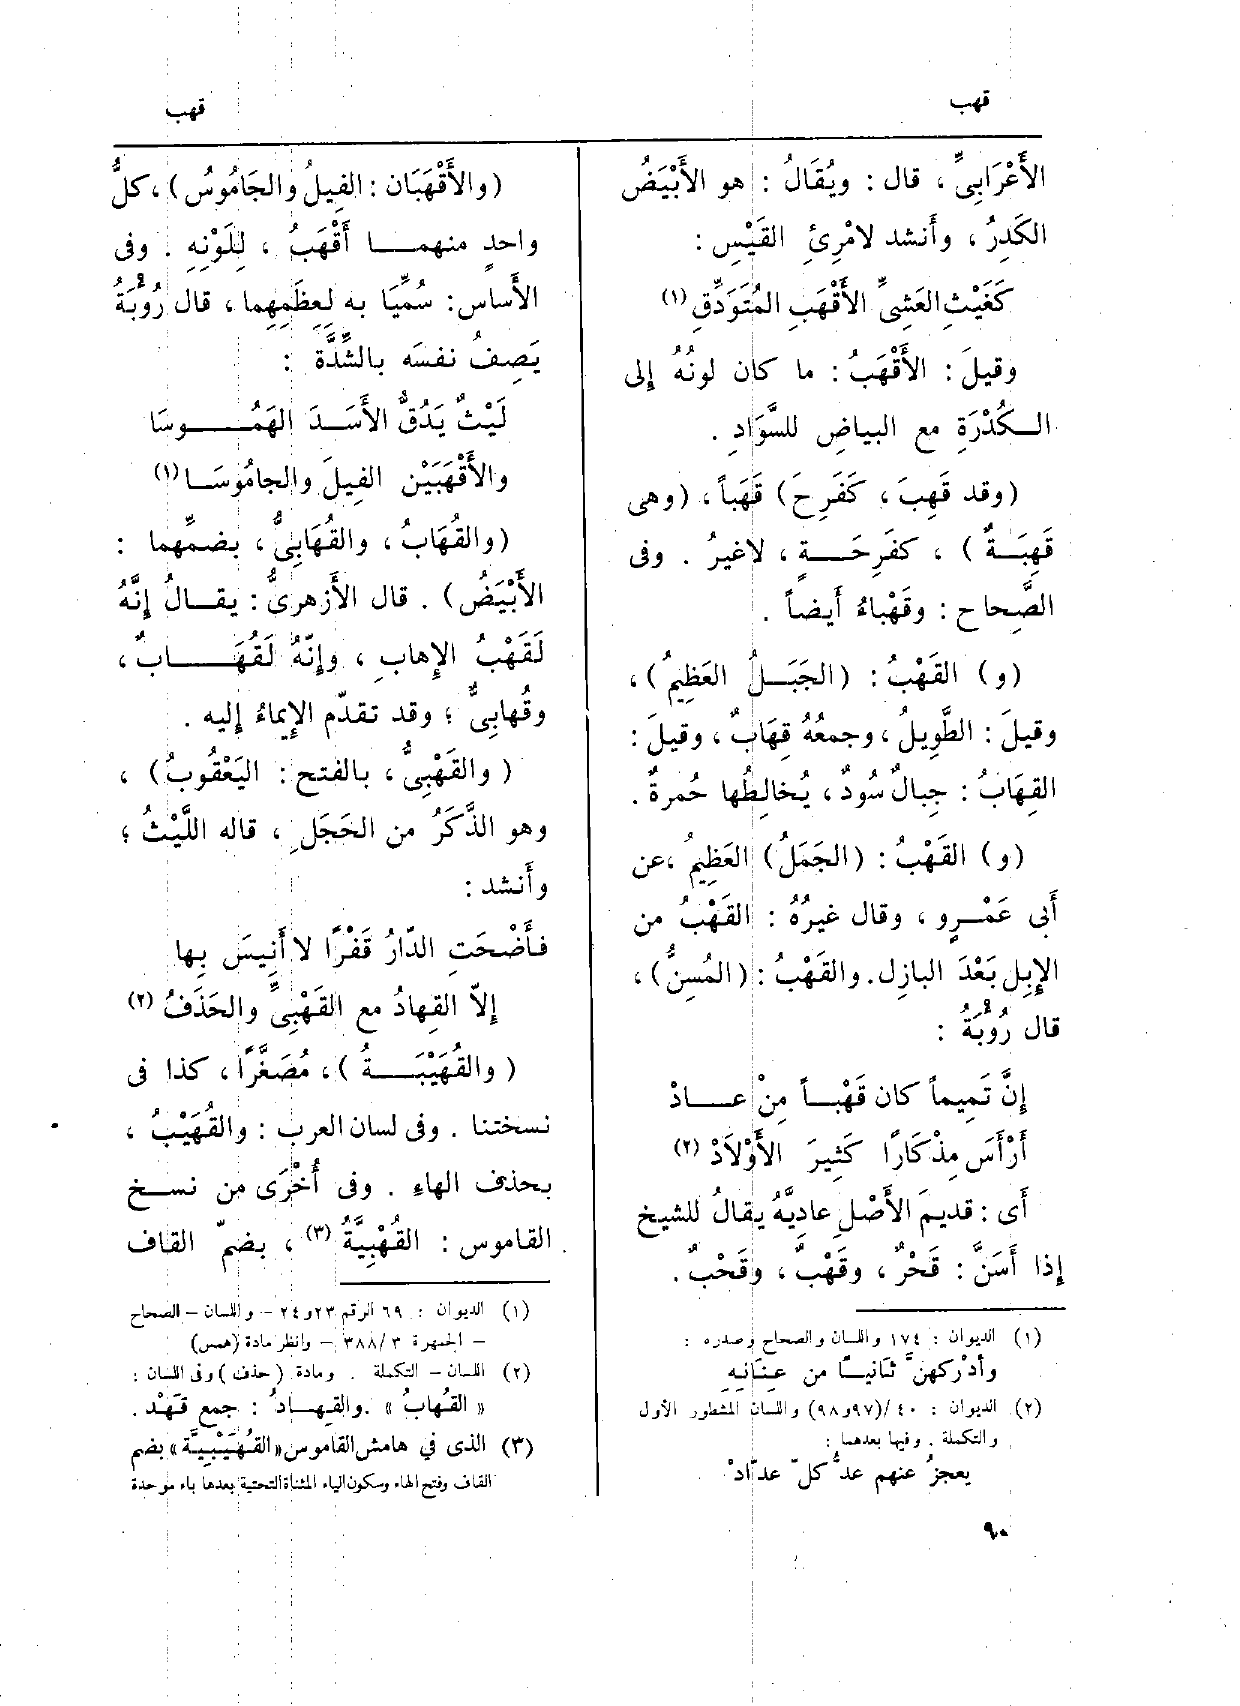 قهب
قهب
الأَعْرَابِىِّ ، قال : ويُقَالُ : هو الأَبْيَضُ
الكَدِرُ ، وأَنشد لامْرِئِ القَيْسِ :
كَغَيْثِ العَشِىِّ الأَقْهَبِ المُتَوَدِّقِ (١)
وقيلَ : الأَقْهَبُ : ما كان لونُهُ إلى
الـكُدْرَةِ مع البياضِ للسَّوَادِ .
(وقد قَهِبَ ، كَفَرِحَ) قَهَباً ، (وهى
قَهِبَــةٌ ) ، كفَرِحَــةٍ ، لاغيرُ . وفى
الصَّحاح : وقَهْباءُ أيضاً .
(و) القَهْبُ : (الجَبَــلُ العَظِيمُ) ،
وقيلَ : الطَّوِيلُ ، وجمعُهُ قِهَابٌ ، وقيلَ :
القِهَابُ : جبالٌ سُودٌ ، يُخالِطُها حُمرةٌ .
(و) القَهْبُ : (الجَمَلُ) العَظِيمُ ،عن
أَبى عَمْـرٍو ، وقال غيرُهُ : القَهْبُ من
الإِبِل بَعْدَ البازِل. والقَهْبُ : (المُسِنُّ) ،
قال رُؤْبَةُ :
إِنَّ تَمِيماً كان قَهْبـاً مِنْ عـــادْ
أَرْأَسَ مِذْكَارًا كَثِيرَ الأَوْلَادْ (٢)
أى : قديمَ الأَصْلِ عادِيَّهُ يقالُ للشيخ
إذا أَسَنَّ : قَحْرٌ ، وقَهْبٌ ، وقَحْبٌ .
(١) الديوان : ١٧٤ واللسان والصحاح وصدره :
وأدْركهنَّ ثانيًـا من عِنَانِهِ
(٢) الديوان : ٤٠/(٩٧و٩٨) واللسان المشطور الأول
والتكملة . وفيها بعدهما :
يعجزُ عنهم عدُّ كلّ عدّادْ
(والأَقْهَبَان : الفِيلُ والجَامُوسُ) ، كلُّ
واحدٍ منهمــا أَقْهَبُ ، لِلَوْنِهِ . وفى
الأَساس : سُمِّيَا به لعِظَمِهِما ، قال رُؤْبَةُ
يَصِفُ نفسَه بالشِّدَّة :
لَيْثٌ يَدُقُّ الأَسَــدَ الهَمُــوسَا
والأَقْهَبَيْن الفِيلَ والجامُوسَــا (١)
(والقُهَابُ ، والقُهَابِىُّ ، بضمِّهما :
الأَبْيَضُ) . قال الأَزهرىُّ : يقــالُ إِنَّهُ
لَقَهْبُ الإِهابِ ، وإنّهُ لَقُهَـــابٌ ،
وقُهابِىٌّ ؛ وقد تقدّم الإيماءُ إليه .
( والقَهْبِىُّ ، بالفتح : اليَعْقُوبُ ) ،
وهو الذَّكَرُ من الحَجَلِ ، قاله اللَّيْثُ ؛
وأَنشد :
فأَضْحَتِ الدّارُ قَفْرًا لا أَنِيسَ بِها
إلاّ القِهادُ مع القَهْبِىِّ والحَذَفُ (٢)
( والقُهَيْبَــةُ ) ، مُصَغَّرًا ، كذا فى
نسختنا . وفى لسان العرب : والقُهَيْبُ ،
بحذف الهاءِ . وفى أُخْرَى من نســخ
القاموس : القُهْبِيَّةُ (٣) ، بضمّ القاف
(١) الديوان : ٦٩ الرقم ٢٣و٢٤ – واللسان – الصحاح
– الجمهرة ٣٨٨/٣ – وانظر مادة (همس)
(٢) اللسان – التكملة . ومادة (حذف ) وفى اللسان :
« القُهابُ » .والقِهـادُ : جمع قَهْد .
(٣) الذى في هامش القاموس «القُهَيْبِيَّة» بضم
القاف وفتح الهاء وسكون الياء المثناة التحتية بعدها باء موحدة
٩٠